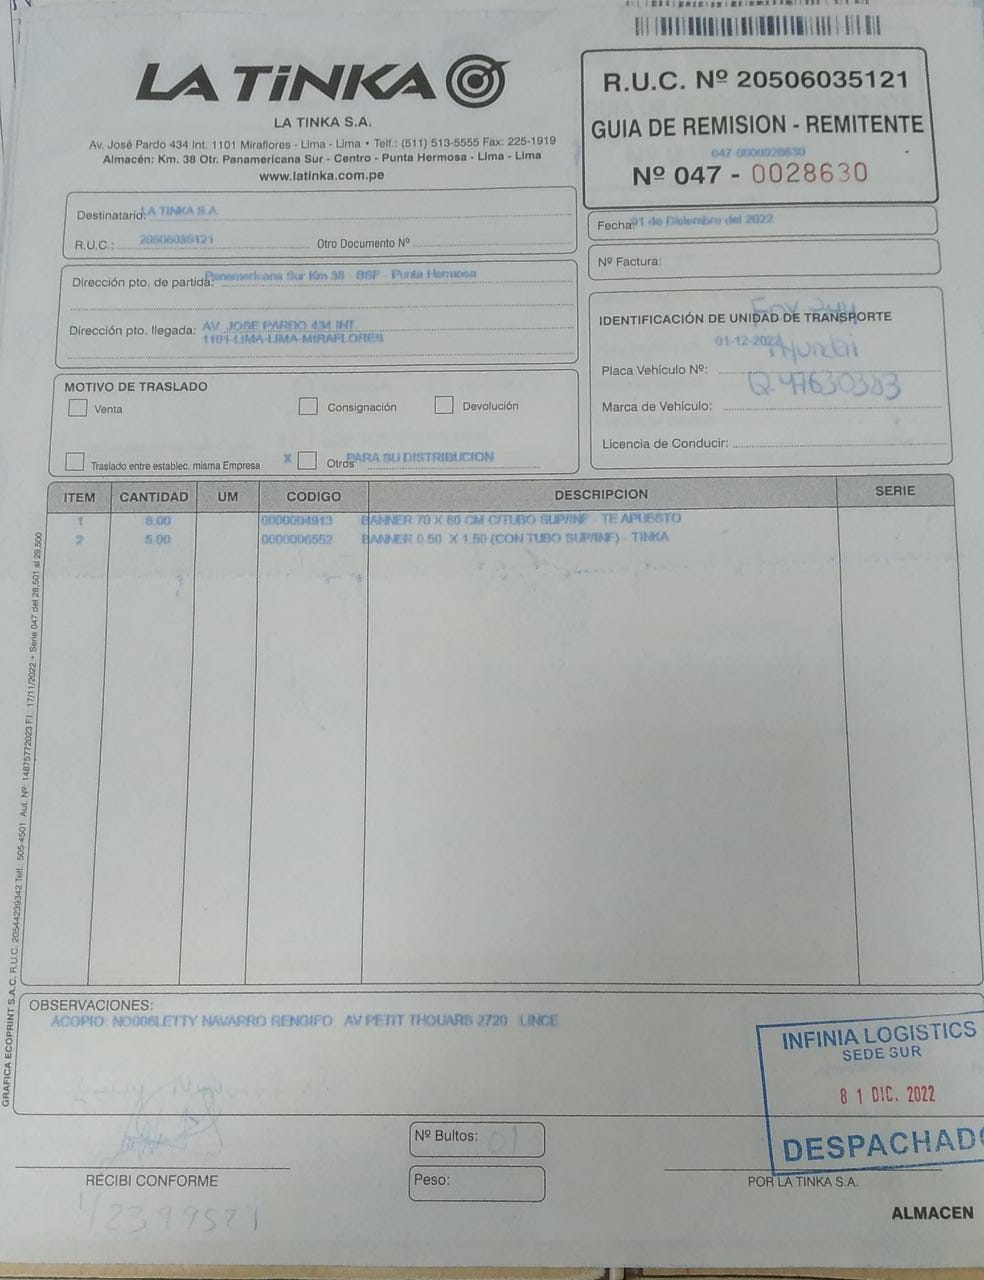 LA TiNKA
LA TINKA S.A.
Av. José Pardo 434 Int. 1101 Miraflores - Lima - Lima • Telf.: (511) 513-5555 Fax: 225-1919
Almacén: Km. 38 Otr. Panamericana Sur - Centro - Punta Hermosa - Lima - Lima
www.latinka.com.pe
R.U.C. Nº 20506035121
GUIA DE REMISION - REMITENTE
047-0000028630
Nº 047 - 0028630
Destinatario: LA TINKA S.A.
R.U.C.: 20506035121 Otro Documento Nº
Fecha: 01 de Diciembre del 2022
Nº Factura:
Dirección pto. de partida: Panamericana Sur Km 38 - BSF - Punta Hermosa
Dirección pto. llegada: AV. JOSE PARDO 434 INT.
1101-LIMA-LIMA-MIRAFLORES
IDENTIFICACIÓN DE UNIDAD DE TRANSPORTE
01-12-2022
Hyundai
Placa Vehículo Nº:
Q 47630383
Marca de Vehículo:
Licencia de Conducir:
MOTIVO DE TRASLADO
Venta Consignación Devolución
Traslado entre establec. misma Empresa X Otros PARA SU DISTRIBUCION
ITEM CANTIDAD UM CODIGO DESCRIPCION SERIE
1 8.00 0000004913 BANNER 70 X 80 CM C/TUBO SUP/INF - TE APUESTO
2 5.00 0000006552 BANNER 0.50 X 1.50 (CON TUBO SUP/INF) - TINKA
GRAFICA ECOPRINT S.A.C. R.U.C. 20544239342 Telf.: 505-4501 Aut. Nº: 14875772023 F.I.: 17/11/2022 • Serie 047 del 28,501 al 29,500
OBSERVACIONES:
ACOPIO: NO006LETTY NAVARRO RENGIFO AV PETIT THOUARS 2720 LINCE
INFINIA LOGISTICS
SEDE SUR
01 DIC. 2022
DESPACHADO
Nº Bultos: 01
Peso:
RECIBI CONFORME
42399571
POR LA TINKA S.A.
ALMACEN